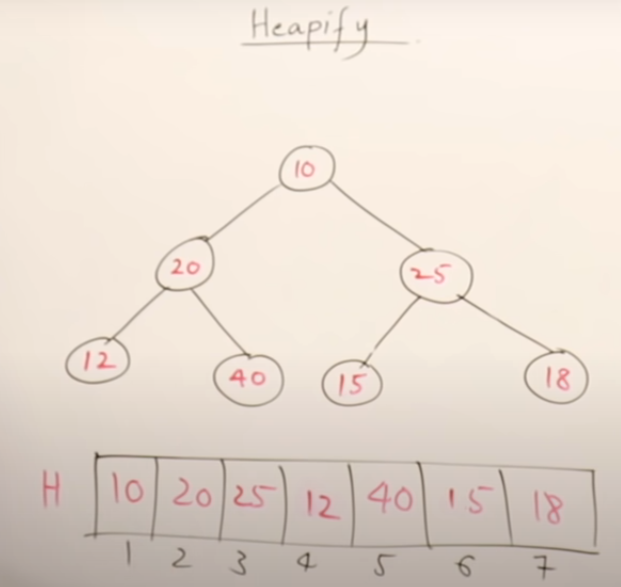 Heapify
10
20 25
12 40 15 18
H 10 20 25 12 40 15 18
1 2 3 4 5 6 7